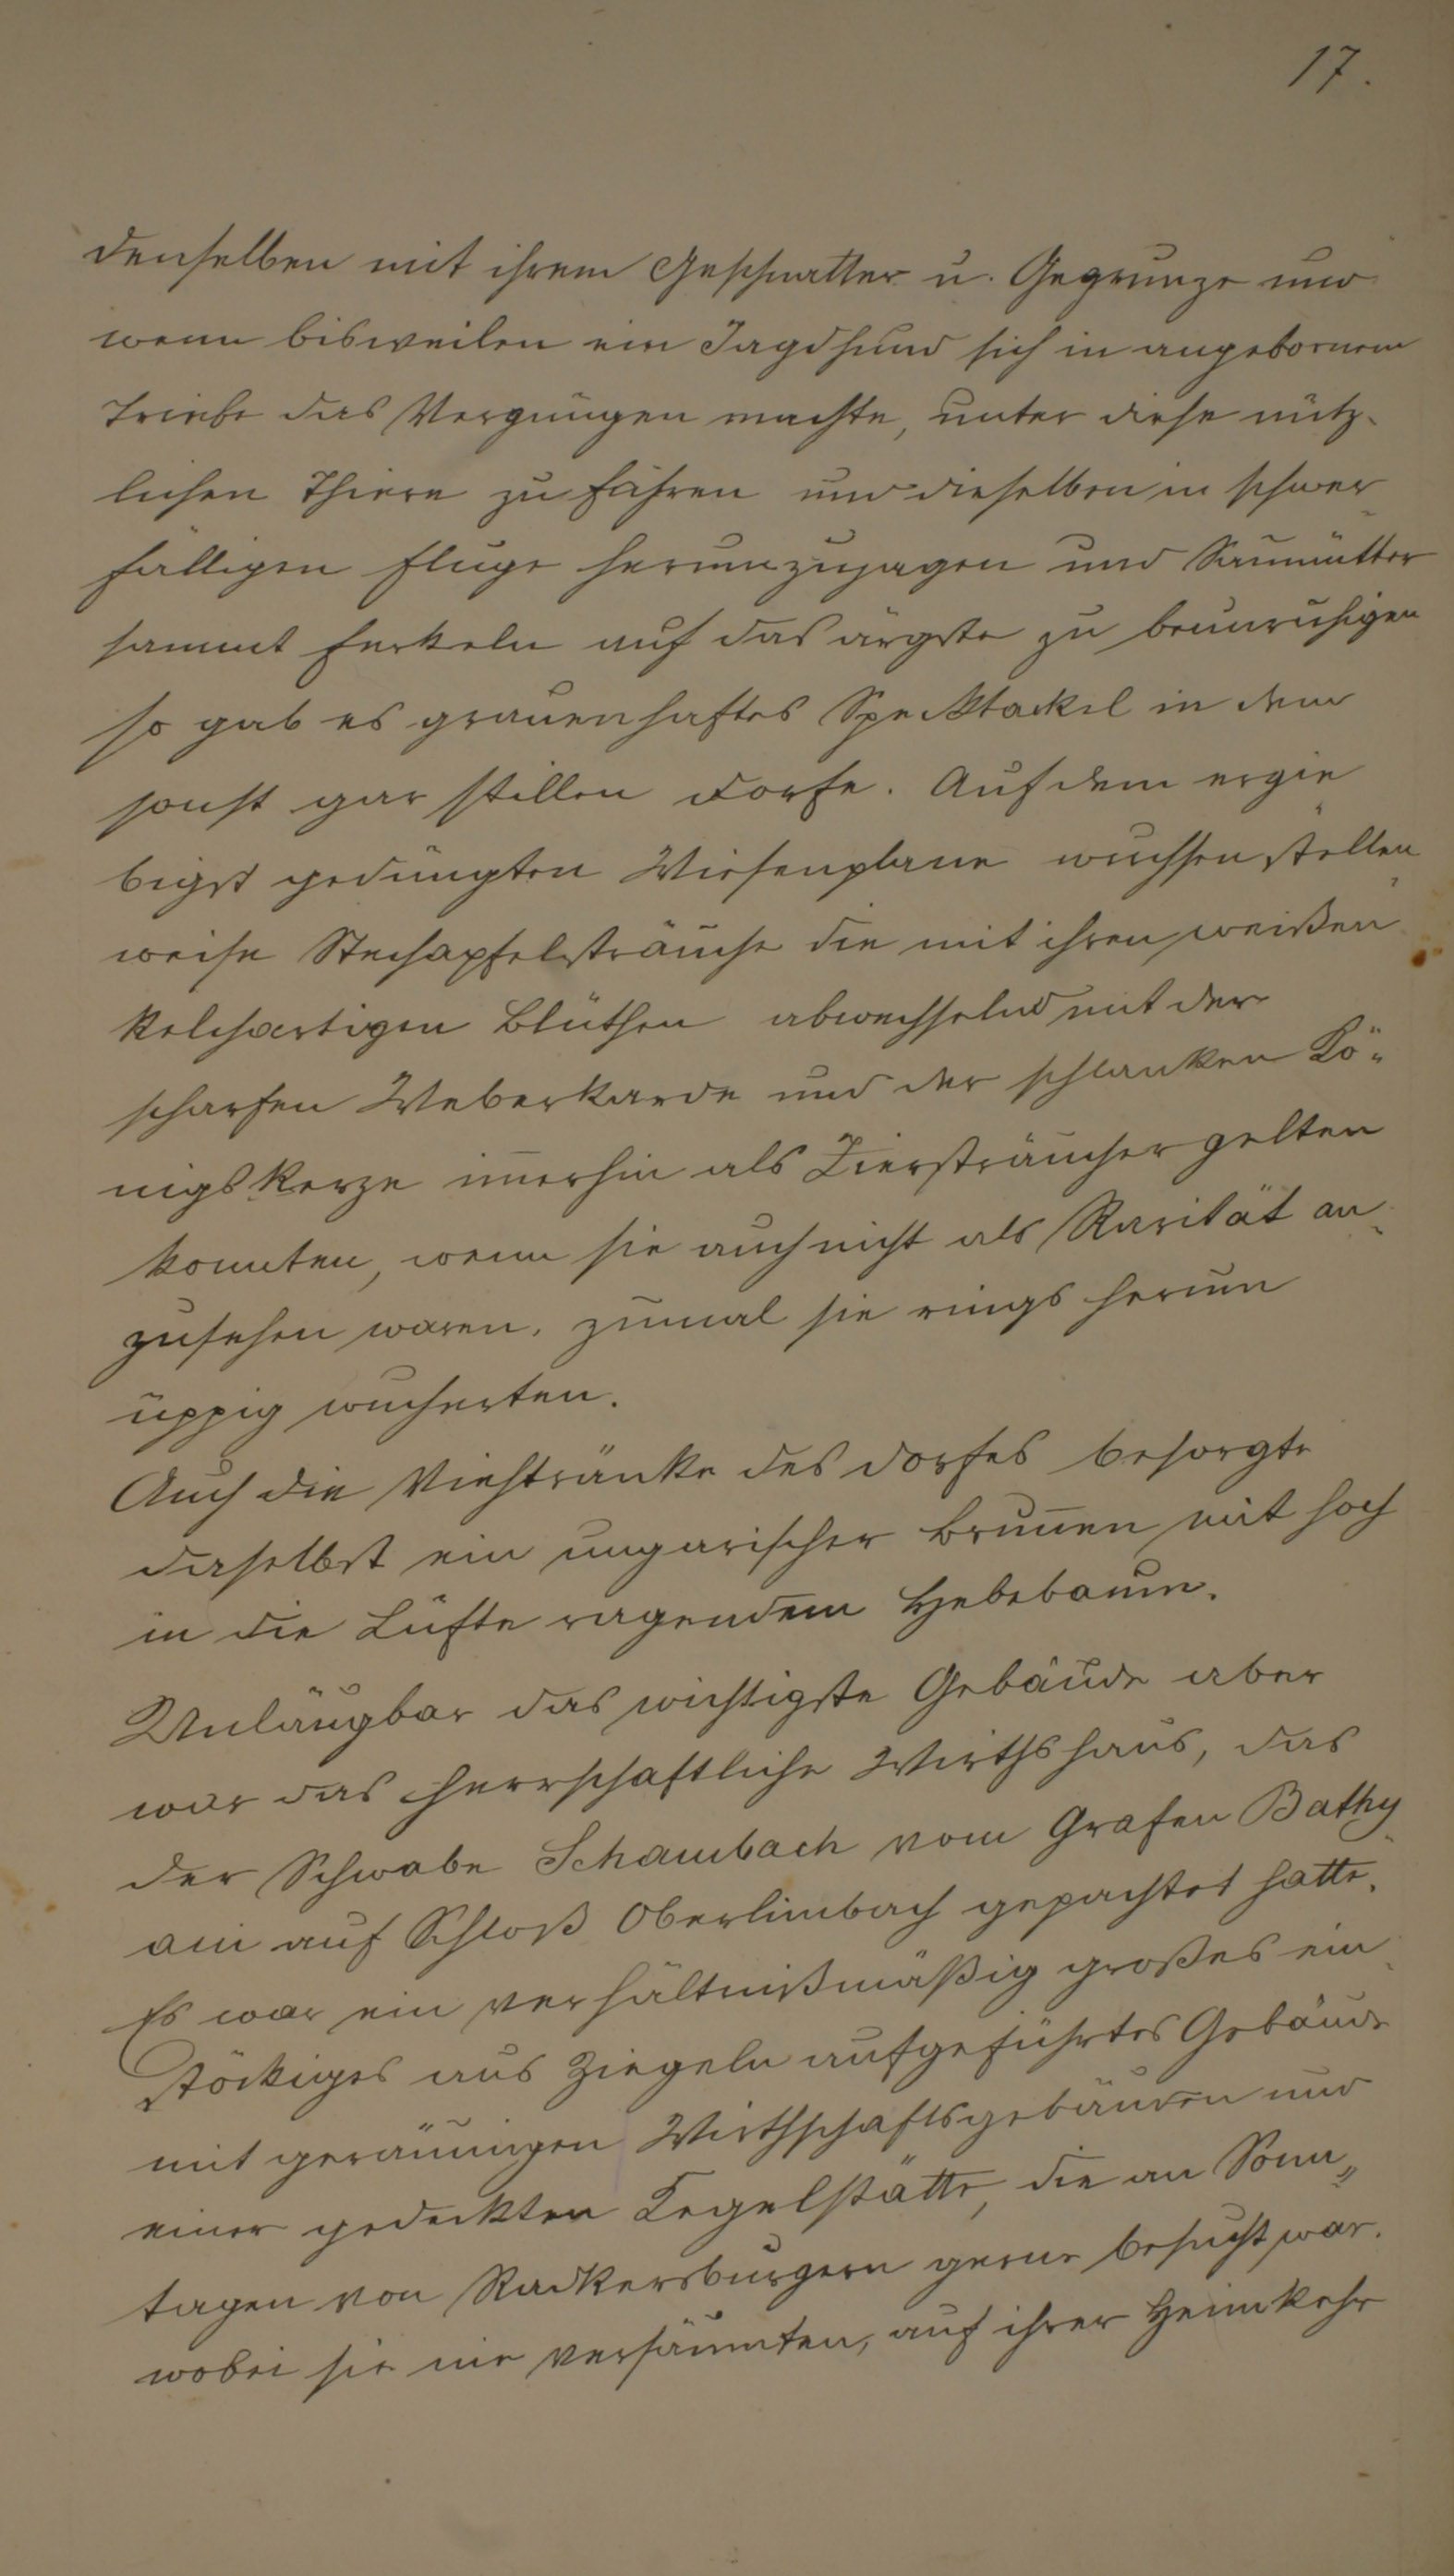 17.
denselben mit ihrem Geschnatter u. Gegrunze und
wenn bisweilen ein Jagdhund sich in angebornem
Triebe das Vergnügen machte, unter diese nütz-
lichen Thiere zu fahren und dieselben in schwer-
fälligen Fluge herumzujagen und Saumütter
sammt Ferkeln auf das ärgste zu beunruhigen
so gab es grauenhaftes Specktackel in dem
sonst gar stillen Dorfe. Auf dem ergie-
bigst gedüngten Wiesenplane wuchsen stellen-
weise Stechapfelsträuche die mit ihren weißen
kelchartigen Blüthen abwechselnd mit der
scharfen Weberkarde und der schlanken Kö-
nigskerze imerhin als Ziersträucher gelten
konnten, wenn sie auch nicht als Rarität an-
zusehen waren, zumal sie rings herum
üppig wucherten.
Auch die Viehtränke des Dorfes besorgte
daselbst ein ungarischer Bruñen mit hoch
in die Lüfte ragendem Hebebaum.
Unläugbar das wichtigste Gebäude aber
war das herrschaftliche Wirthshaus, das
der Schwabe Schambach vom Grafen Bathy-
ani auf Schloß Oberlimbach gepachtet hatte.
Es war ein verhältnißmäßig großes ein-
stöckiges aus Ziegeln aufgeführtes Gebäude
mit geräumigen Wirthschaftsgebäuden und
einer gedeckten Kegelstätte, die an Sonn-
tagen von Radkersburgern gerne besucht war.
wobei sie nie versäumten, auf ihrer Heimkehr